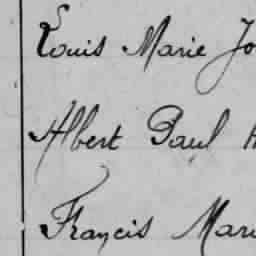 Louis Marie Jo
Albert Paul
Francis Mari